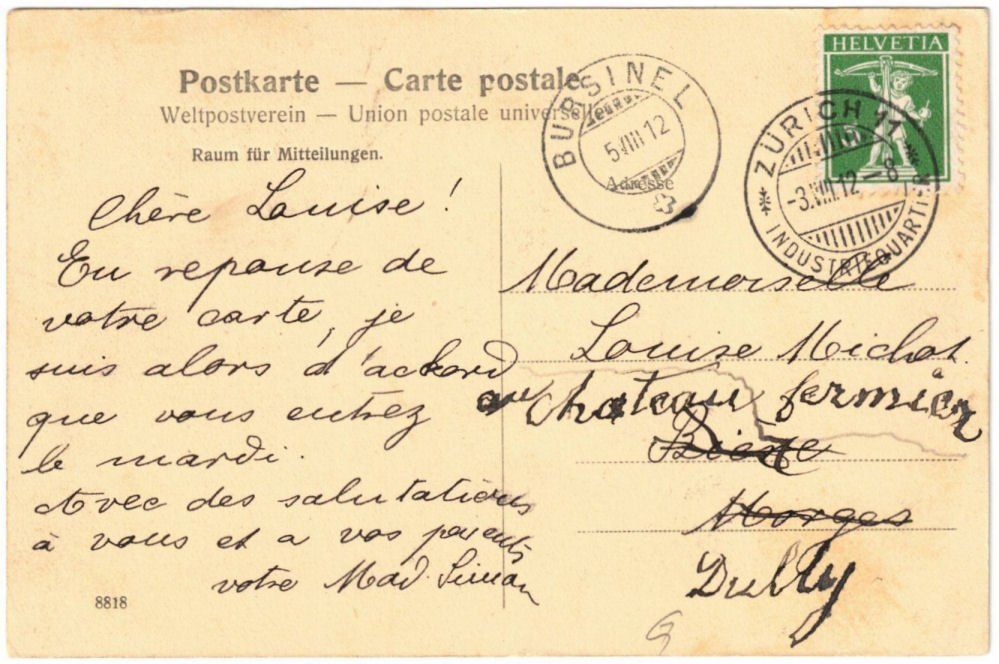 Postkarte — Carte postale
Weltpostverein — Union postale universelle
Raum für Mitteilungen.
Adresse
BURSINEL
5 VIII 12
HELVETIA
ZÜRICH 11
-3.VIII.12 - 8
INDUSTRIEQUARTIER
Chère Louise!
En reponse de
votre carte, je
suis alors d'ackord
que vous entrez
le mardi.
Avec des salutations
à vous et a vos parents
votre Mad.
8818
Mademoiselle
Louise Michot.
au chateau fermier
Morges
Dully